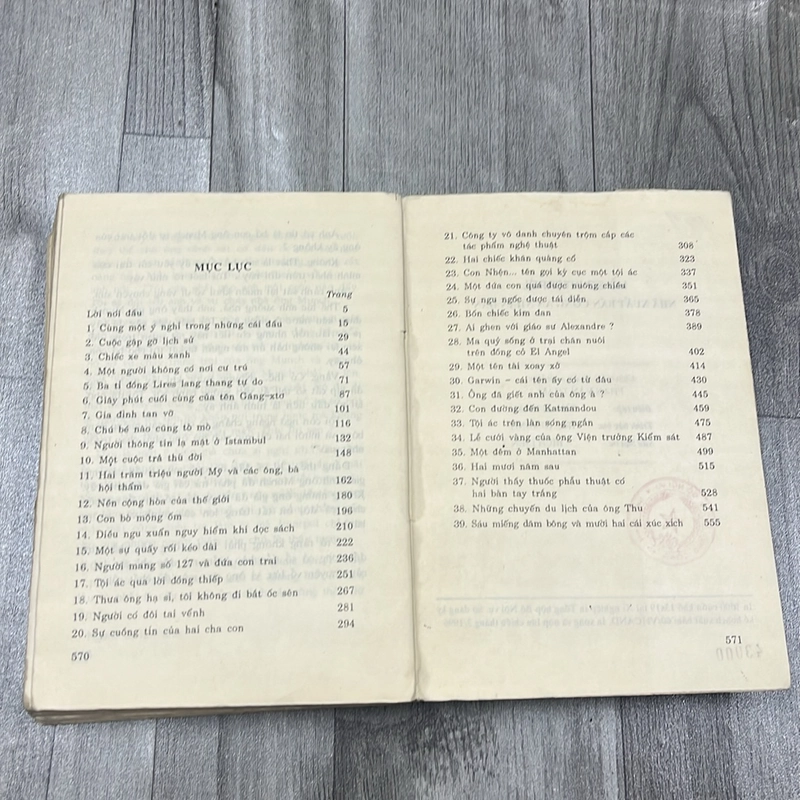 MỤC LỤC
Trang
Lời nói đầu 5
1. Cùng một ý nghĩ trong những cái đầu 15
2. Cuộc gặp gỡ lịch sử 29
3. Chiếc xe màu xanh 44
4. Một người không có nơi cư trú 57
5. Ba tỉ đồng Lires lang thang tự do 71
6. Giây phút cuối cùng của tên Găng-xtơ 87
7. Gia đình tan vỡ 101
8. Chú bé nào cũng tò mò 116
9. Người thông tin lạ mặt ở Istambul 132
10. Một cuộc trả thù đời 148
11. Hai trăm triệu người Mỹ và các ông, bà
hội thẩm 162
12. Nền cộng hòa của thế giới 180
13. Con bò mộng ốm 196
14. Điều ngu xuẩn nguy hiểm khi đọc sách 210
15. Một sự quấy rối kéo dài 222
16. Người mang số 127 và đứa con trai 236
17. Tội ác qua lời đồng thiếp 251
18. Thưa ông họa sĩ, tôi không đi bắt ốc sên 267
19. Người có đôi tai vểnh 281
20. Sự cuồng tín của hai cha con 294
570
21. Công ty vô danh chuyên trộm cắp các
tác phẩm nghệ thuật 308
22. Hai chiếc khăn quàng cổ 323
23. Con Nhện... tên gọi kỳ cục một tội ác 337
24. Một đứa con quá được nuông chiều 351
25. Sự ngu ngốc được tái diễn 365
26. Bốn chiếc kim đan 378
27. Ai ghen với giáo sư Alexandre ? 389
28. Ma quỷ sống ở trại chăn nuôi
trên đồng cỏ El Angel 402
29. Một tên tài xoay xở 414
30. Garwin – cái tên ấy có từ đâu 430
31. Ông đã giết anh của ông à ? 445
32. Con đường đến Katmandou 459
33. Tội ác trên làn sóng ngắn 475
34. Lễ cưới vàng của ông Viện trưởng Kiểm sát 487
35. Một đêm ở Manhattan 499
36. Hai mươi năm sau 515
37. Người thầy thuốc phẫu thuật có
hai bàn tay trắng 528
38. Những chuyến du lịch của ông Thu 541
39. Sáu miếng dăm bông và mười hai cái xúc xích 555
571